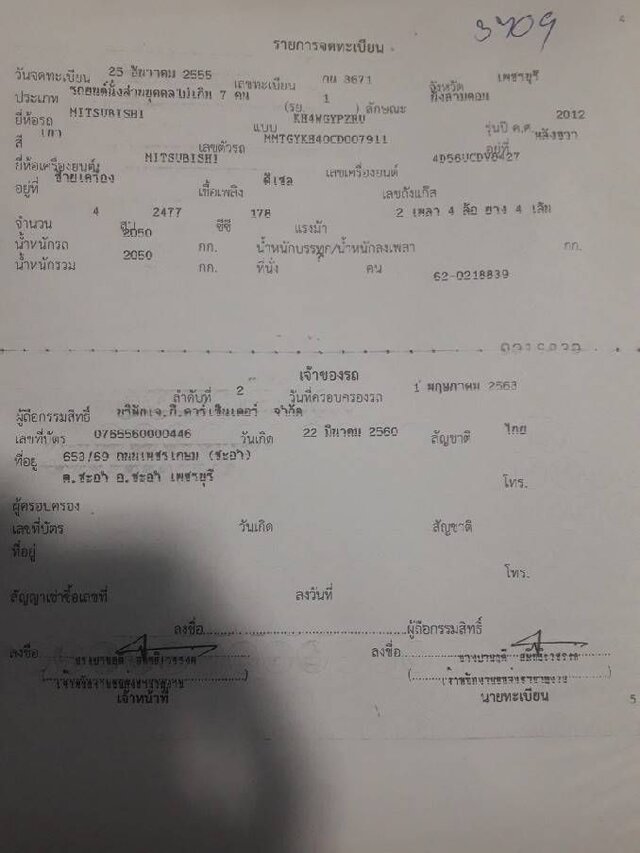 3709
4
รายการจดทะเบียน
วันจดทะเบียน 25 ธันวาคม 2555 เลขทะเบียน กย 3671 จังหวัด เพชรบุรี
ประเภท รถยนต์นั่งส่วนบุคคลไม่เกิน 7 คน (รย. 1 ) ลักษณะ นั่งสามตอน
ยี่ห้อรถ MITSUBISHI แบบ KH4WGYPZRU รุ่นปี ค.ศ. 2012
สี เทา เลขตัวรถ MMTGYKH40CD007911 อยู่ที่ หลังขวา
ยี่ห้อเครื่องยนต์ MITSUBISHI เลขเครื่องยนต์ 4D56UCDV8427
อยู่ที่ ซ้ายเครื่อง เชื้อเพลิง ดีเซล เลขถังแก๊ส
จำนวน 4 สูบ 2477 ซีซี 178 แรงม้า 2 เพลา 4 ล้อ ยาง 4 เส้น
น้ำหนักรถ 2050 กก. น้ำหนักบรรทุก/น้ำหนักลงเพลา กก.
น้ำหนักรวม 2050 กก. ที่นั่ง คน 62-0218839
เจ้าของรถ
ลำดับที่ 2 วันที่ครอบครองรถ 1 พฤษภาคม 2563
ผู้ถือกรรมสิทธิ์ บริษัทเจ.ที.คาร์เซ็นเตอร์ จำกัด
เลขที่บัตร 0765560000446 วันเกิด 22 มีนาคม 2560 สัญชาติ ไทย
ที่อยู่ 653/69 ถนนเพชรเกษม (ชะอำ)
ต.ชะอำ อ.ชะอำ เพชรบุรี
โทร.
ผู้ครอบครอง
เลขที่บัตร วันเกิด สัญชาติ
ที่อยู่
โทร.
สัญญาเช่าซื้อเลขที่ ลงวันที่
ลงชื่อ ผู้ถือกรรมสิทธิ์
ลงชื่อ ลงชื่อ
เจ้าหน้าที่ นายทะเบียน
5